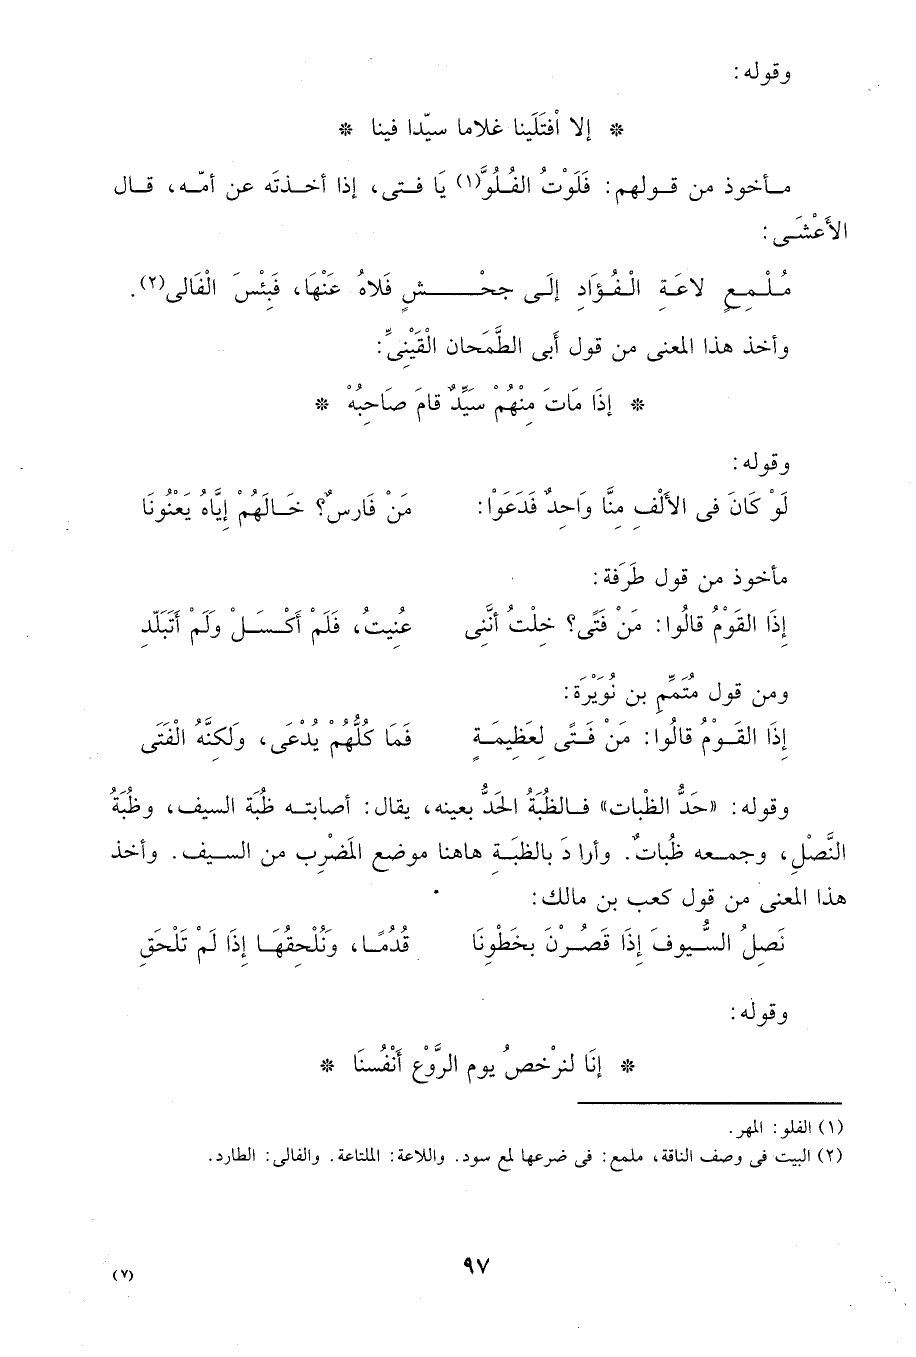 وقوله:
* إلا أفْتَلَينا غلاما سيّدا فينا *
مـأخوذ من قـولهم: فَلَوْتُ الفُـلُوَّ(١) يَا فـتى، إذا أخـذتَه عن أمّـه، قـال
الأَعْشَـى:
مُـلْـمِـعٍ لاعَـةِ الْـفُـؤَادِ إلَـى جحْـــــشٍ فَلاهُ عَنْهَا، فَبِئْسَ الْفَالى(٢).
وأخذ هذا المعنى من قول أبى الطَّمَحان الْقَيْنِىِّ:
* إذَا مَاتَ مِنْهُمْ سَيِّدٌ قامَ صَاحِبُهْ *
وقوله:
لَوْ كَانَ فى الأَلْفِ مِنَّا وَاحِدٌ فَدَعَوْا: مَنْ فَارِسٌ؟ خَـالَهُمْ إيَّاهُ يَعْنُونَا
مأخوذ من قول طَرَفة:
إذَا القَوْمُ قالُوا: مَنْ فَتًى؟ خِلْتُ أنَّنِى عُنِيتُ، فَلَمْ أَكْـسَـلْ ولَمْ أَتَبَلّدِ
ومن قول مُتَمِّمِ بن نُوَيْرَة:
إذَا القَـوْمُ قالُوا: مَنْ فَـتًى لِعَظِيمَـةٍ فَمَا كُلُّهُم يُدْعَى، ولَكِنَّهُ الْفَتَى
وقوله: «حَدُّ الظُّبات» فـالظُّبَةُ الحَدُّ بعينه، يقال: أصابتـه ظُبَة السيف، وظُبَةُ
النَّصْلِ، وجمـعه ظُباتٌ. وأرادَ بالظبَـةِ هاهنا موضع المَضْرِب من السـيف. وأخذ
هذا المعنى من قول كعب بن مالك:
نَصِلُ السُّـيوفَ إذَا قَصُـرْنَ بخَطْوِنَا قُدُمًـا، ونُلْحِقُهَـا إذَا لَمْ تَلْحَقِ
وقوله:
* إنَا لنرْخصُ يوم الرَّوْعِ أَنْفُسنَا *
(١) الفلو: المهر.
(٢) البيت فى وصف الناقة، ملمع: فى ضرعها لمع سود. واللاعة: الملتاعة. والفالى: الطارد.
٩٧
(٧)